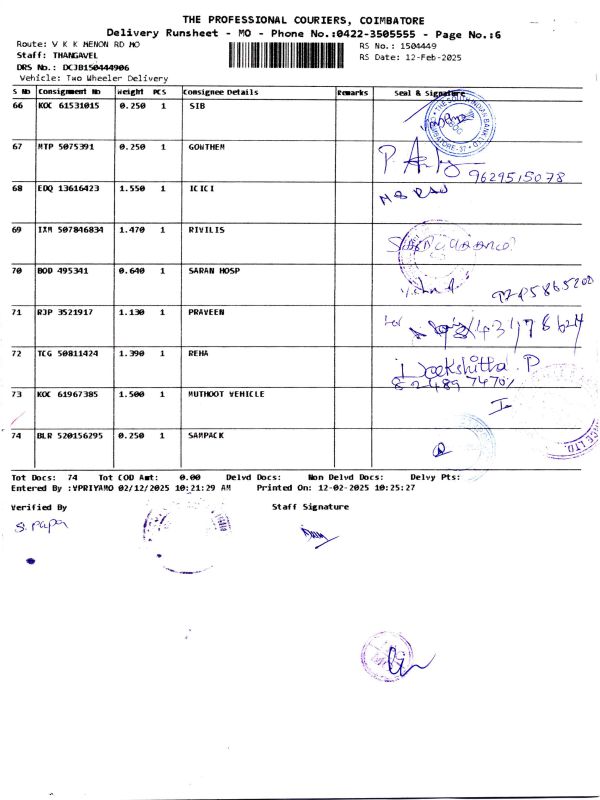 THE PROFESSIONAL COURIERS, COIMBATORE
Delivery Runsheet - MO - Phone No.:0422-3505555 - Page No.:6
Route: V K K MENON RD MO
RS No.: 1504449
Staff: THANGAVEL
RS Date: 12-Feb-2025
DRS No.: DCJB150444906
Vehicle: Two Wheeler Delivery
S No Consignment No Weight PCS Consignee Details Remarks Seal & Signature
66 KOC 61531015 0.250 1 SIB
67 MTP 5075391 0.250 1 GOWTHEM
9629515078
68 EDQ 13616423 1.550 1 ICICI
69 IXM 507846834 1.470 1 RIVILIS
70 BOD 495341 0.640 1 SARAN HOSP
71 RJP 3521917 1.130 1 PRAVEEN
72 TCG 50811424 1.390 1 REHA
Deekshitha P
73 KOC 61967385 1.500 1 MUTHOOT VEHICLE
74 BLR 520156295 0.250 1 SAMPACK
Tot Docs: 74 Tot COD Amt: 0.00 Delvd Docs: Non Delvd Docs: Delvy Pts:
Entered By :VPRIYAMO 02/12/2025 10:21:29 AM Printed On: 12-02-2025 10:25:27
Verified By Staff Signature
S. Papa